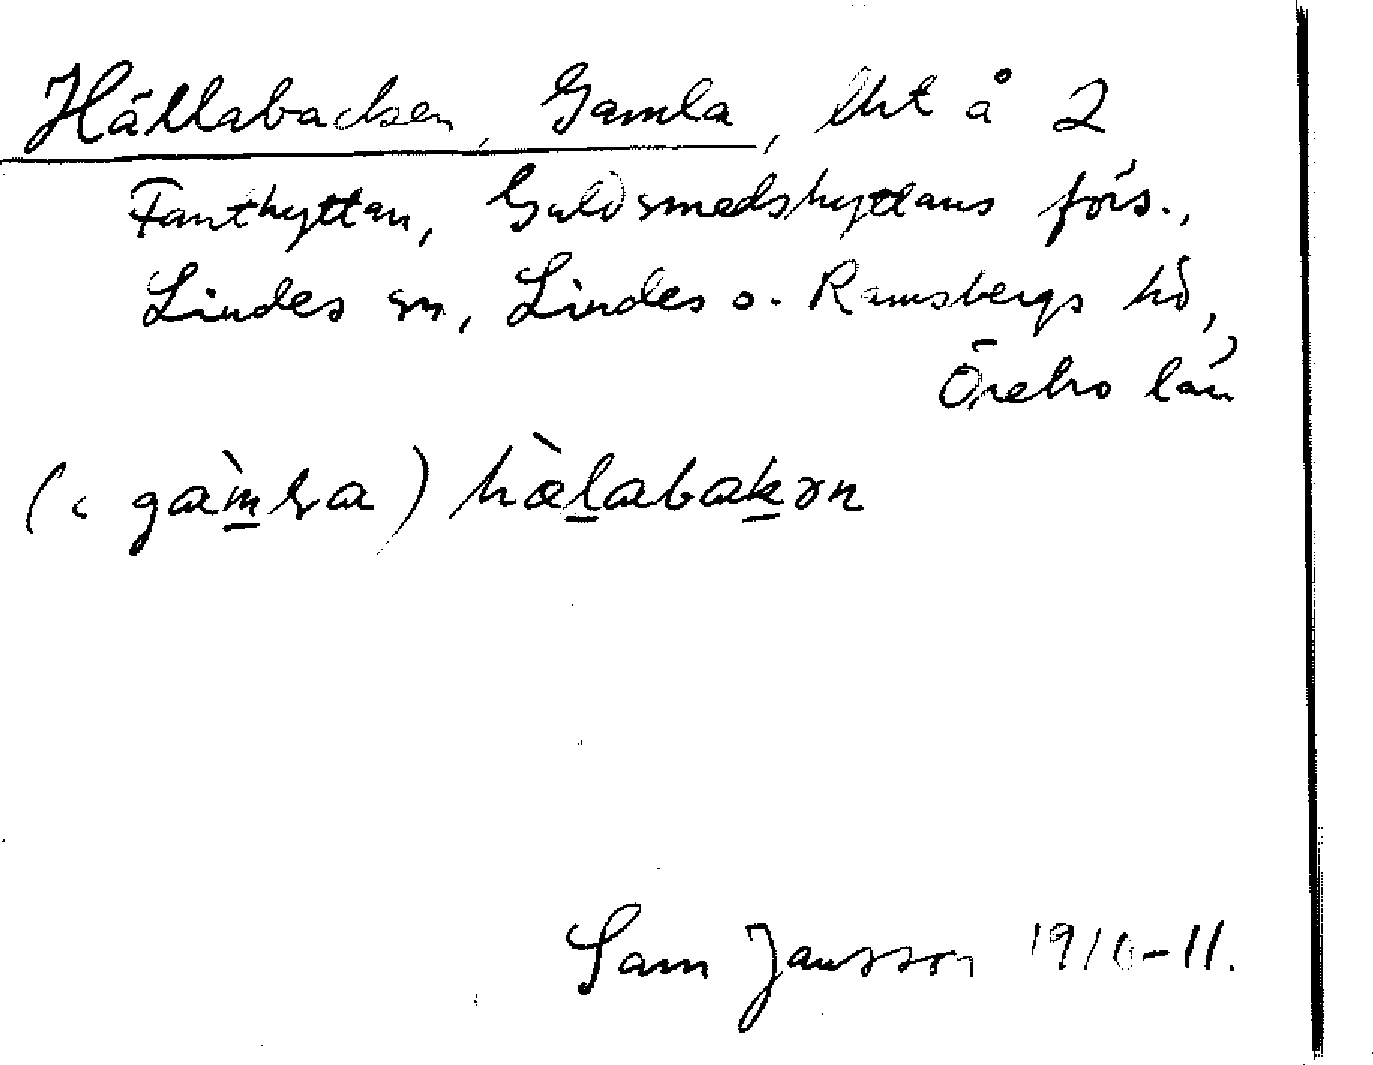 Hällabacken, Gamla, lht å 2
Fanthyttan, Guldsmedshyttans förs.,
Lindes sn, Lindes o. Ramsbergs hd,
Örebro län
hæ̀labakən
Sam Jansson 1910-11.